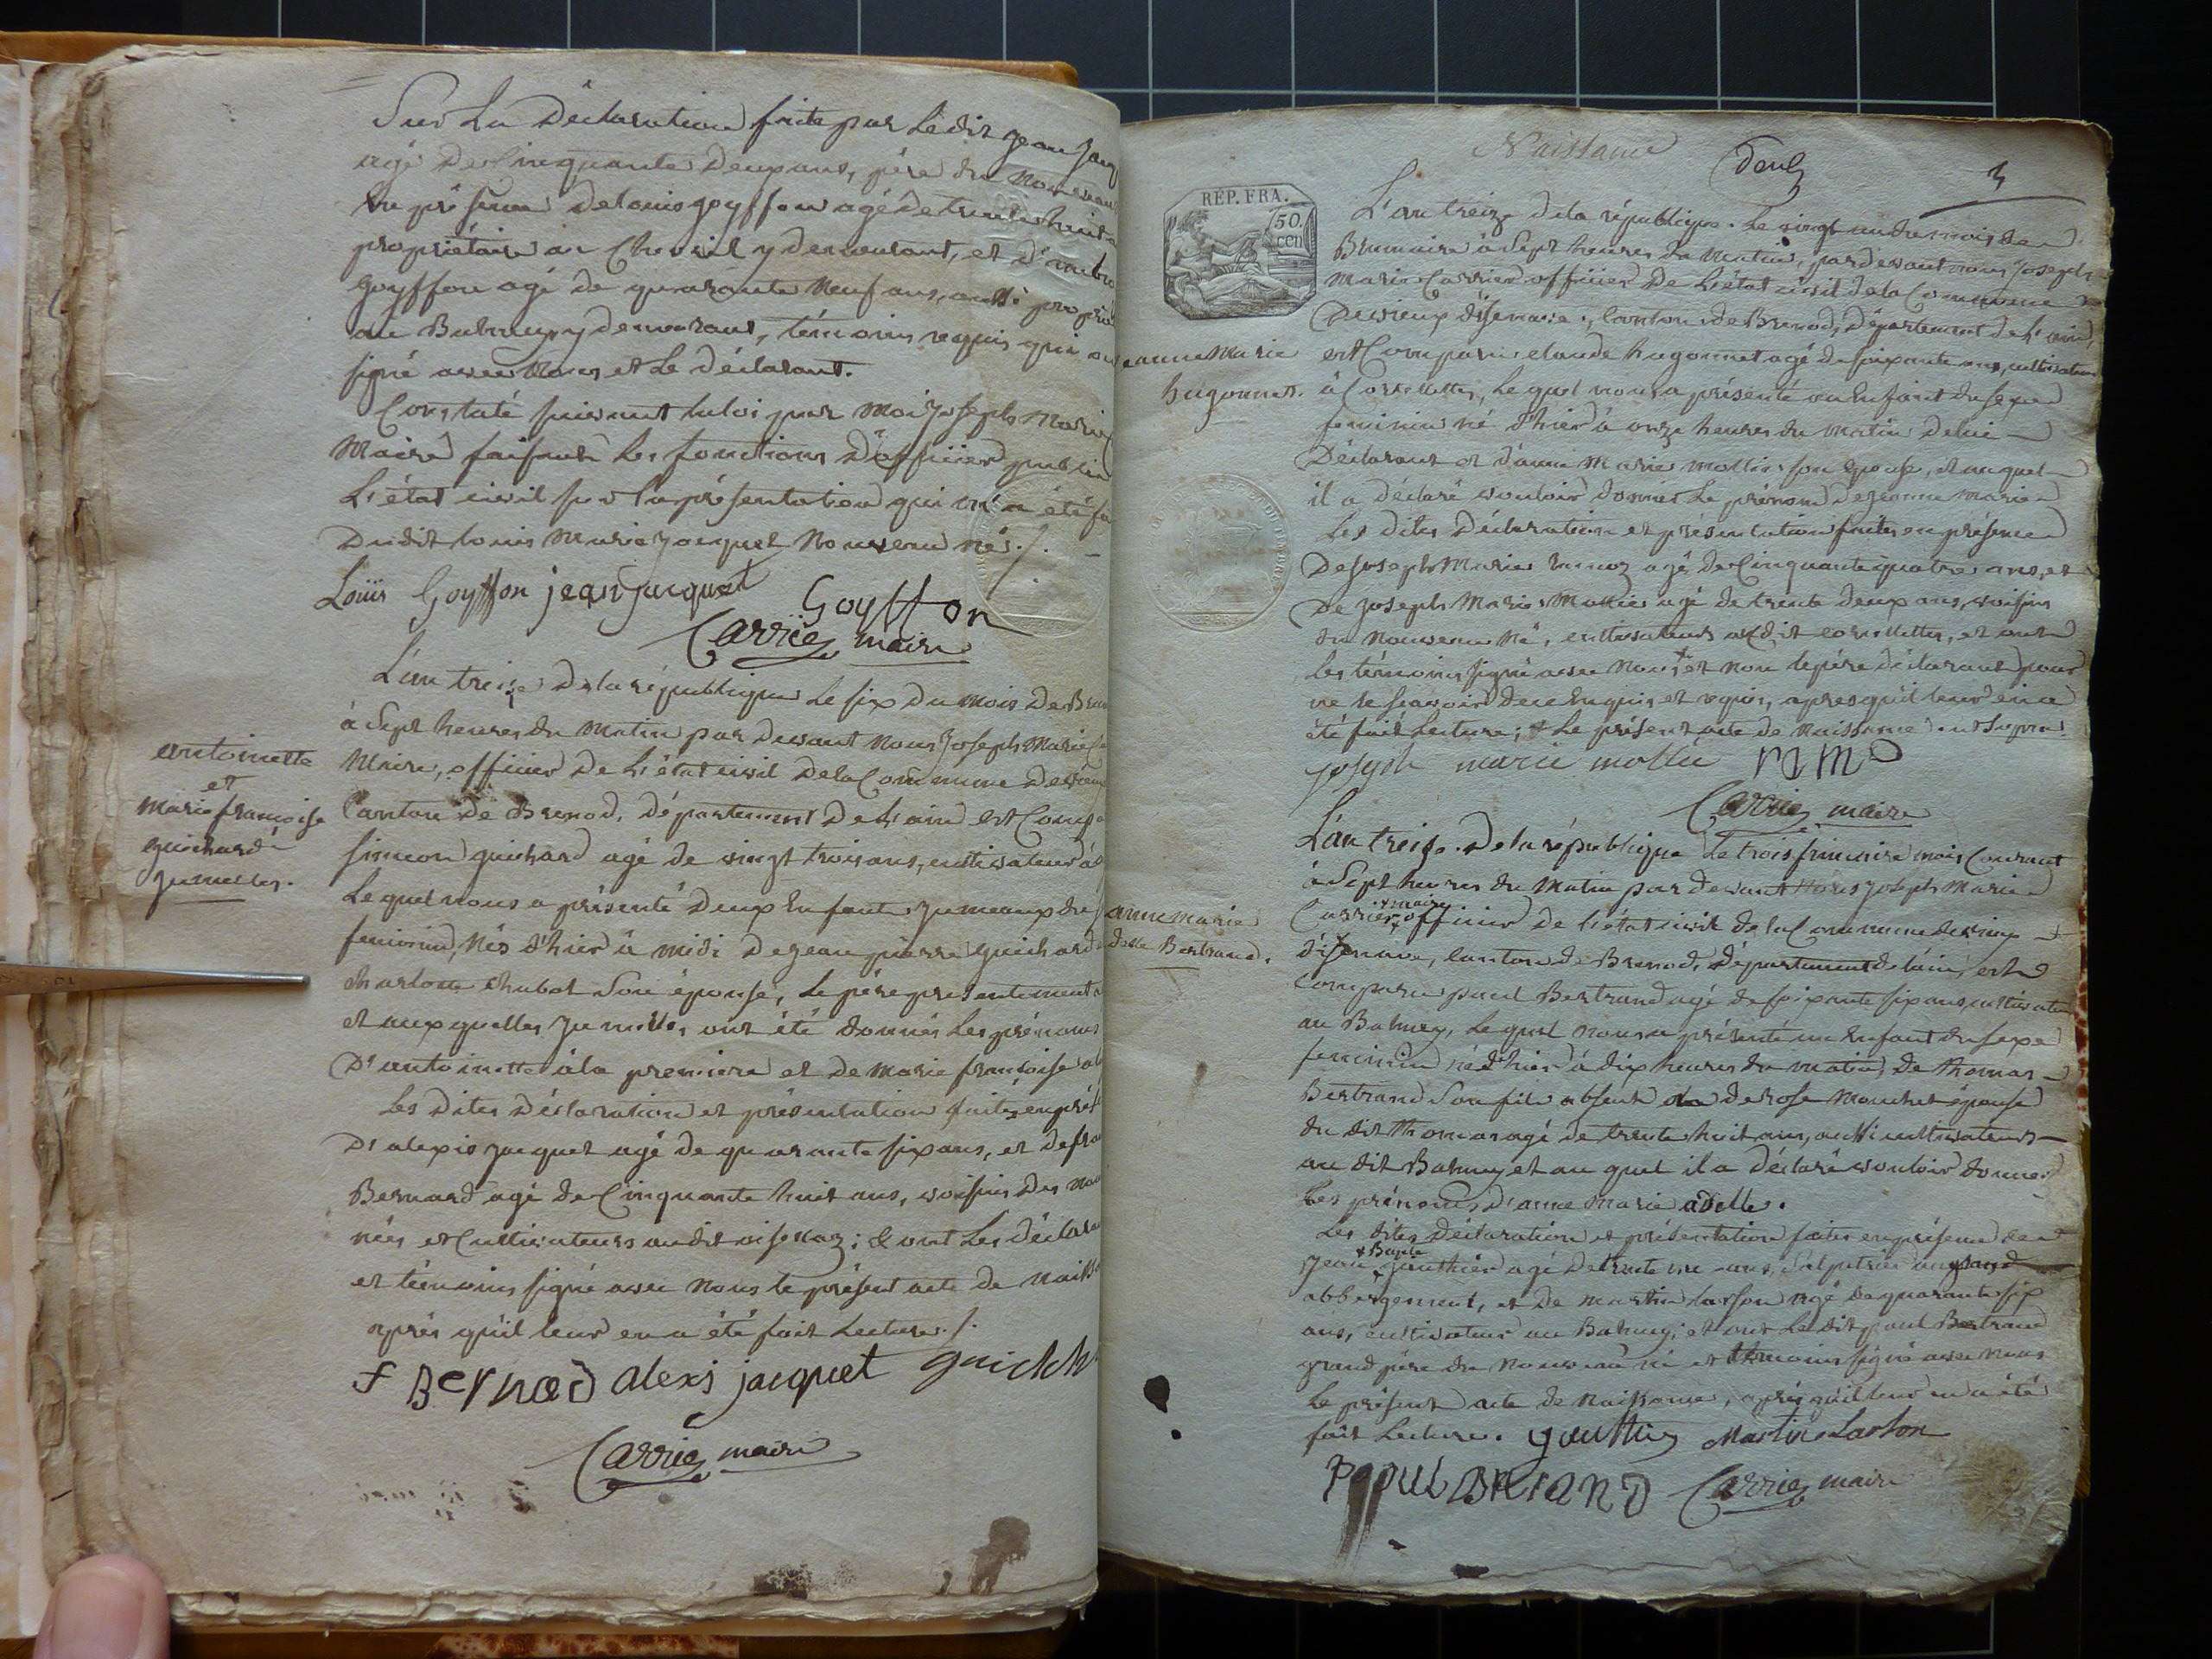 Sur La Déclaration faite par Ledit jean Jacq
agé De Cinquante Deux ans, père du nouveau
En présence de louis goyffon agé De trente huit
propriétaire au Chevril y demeurant, et d'
goyffon agé de quarante Neuf ans, aussi propriét
au Balmey y demeurant, témoins requis qui ont
signé avec Nous et Le déclarant.
Constaté suivant la loi par Moi joseph Marie
Maire faisant Les fonctions D'officier public
L'état civil sur la présentation qui m'a été fa
Dudit louis Marie jacquet Nouveau né ./.
Louis Goyffon jean jacquet Goyffon
Carrier, maire
antoinette
et
marie françoise
guichard
jumelles.
L'an treize De la république Le six Du Mois De Bru
à Sept heures du Matin par Devant Nous Joseph Marie
Maire, officier De L'état civil De la Commune Devieu
Canton De Brenod, Département De L'ain est Comp
simeon guichard agé de vingt trois ans, cultivateur à
Lequel nous a présenté Deux Enfants jumeaux du
feminin, Nés d'hier à midi De jean pierre guichard
charlotte chabot Son épouse, Le père presentement
et auxquelles jumelles ont été donnés Les prénoms
D'antoinette à la premiere et de Marie françoise a
Les Dites Déclaration et présentation faites en prés
D'alexis jacquet agé de quarante six ans, et de fra
Bernard agé de Cinquante huit ans, voisins Des nou
nés et Cultivateurs audit ; & ont Les Déclara
et témoins signé avec Nous le présent acte de Naiss
après qu'il leur en a été fait Lecture ./.
f Bernod alexis jacquet guichh
Carrier, maire
Naissance
Deux
3
REP. FRA.
50.
cen
L'an treize de la république. Le vingt un du mois de
Brumaire à Sept heures du Matin, par devant nous joseph
Marie Carrier officier De L'état civil de la Commune
De vieux d'isenave, Canton de Brenod, Département de L'ain,
jeanne Marie
hugonnet.
est Comparu claude hugonnet agé de soixante ans, cultivateur
à Corcelettes, Lequel nous a présenté un Enfant du sexe
feminin né d'hier à onze heures du Matin de lui
Déclarant et d'anne Marie mollie son Epouse, et auquel
il a déclaré vouloir donner Le prénom de jeanne Marie
Les dites Déclaration et présentation faites en présence
De joseph Marie agé de Cinquante quatre ans, et
De joseph Marie Mollie agé de trente deux ans, voisins
du nouveau né, cultivateurs audit corcelettes, et ont
Les témoins signé avec nous et non le père déclarant pour
ne le scavoir de ce Enquis et requis, apres qu'il leur en a
été fait Lecture; + Le présent acte de Naissance
joseph marie mollie M M D
Carrier, maire
L'an treize. De la république Le trois frimaire mois Courant
à Sept heures du Matin par devant Nous joseph Marie
+ maire
Carrier, + officier De L'état civil de la Commune de vieux
anne marie
adelle Bertrand.
d'isenave, Canton de Brenod, Département de l'ain, est
Comparu paul Bertrand agé de soixante six ans, cultivateur
au Balmey, Lequel nous a présenté un Enfant du sexe
feminin né d'hier à dix heures du matin, De thomas
Bertrand Son fils absent de rose Mouchet épouse
du dit thomas agé de trente huit ans, aussi cultivateurs
au dit Balmey et au quel il a déclaré vouloir donner
Les prénoms d'anne Marie adelle.
Les dites Déclaration et présentation faites en présence de
+ Bapte
Jean + gauthier agé de trente un ans, Salpetrier au grand
abbergement, et De martin larson agé de quarante six
ans, cultivateur au Balmey; et ont Ledit paul Bertrand
grand père du nouveau né et témoins signé avec nous
Le présent acte de Naissance, après qu'il leur en a été
fait Lecture. gauthier Martin Larson
Carrier, maire